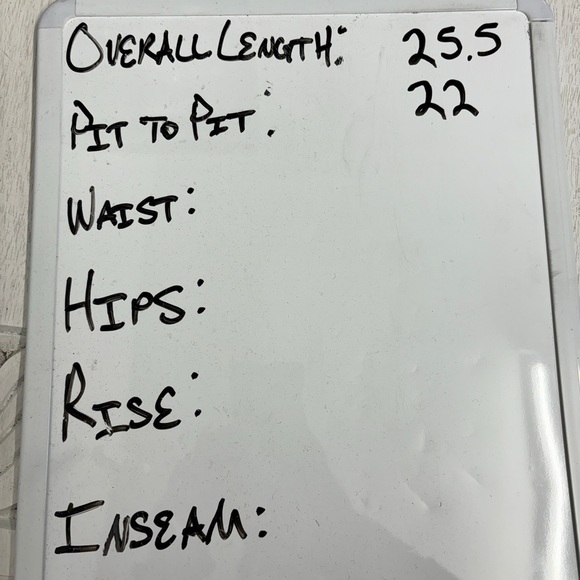 OVERALL LENGTH: 25.5
PIT TO PIT: 22
WAIST:
HIPS:
RISE:
INSEAM: